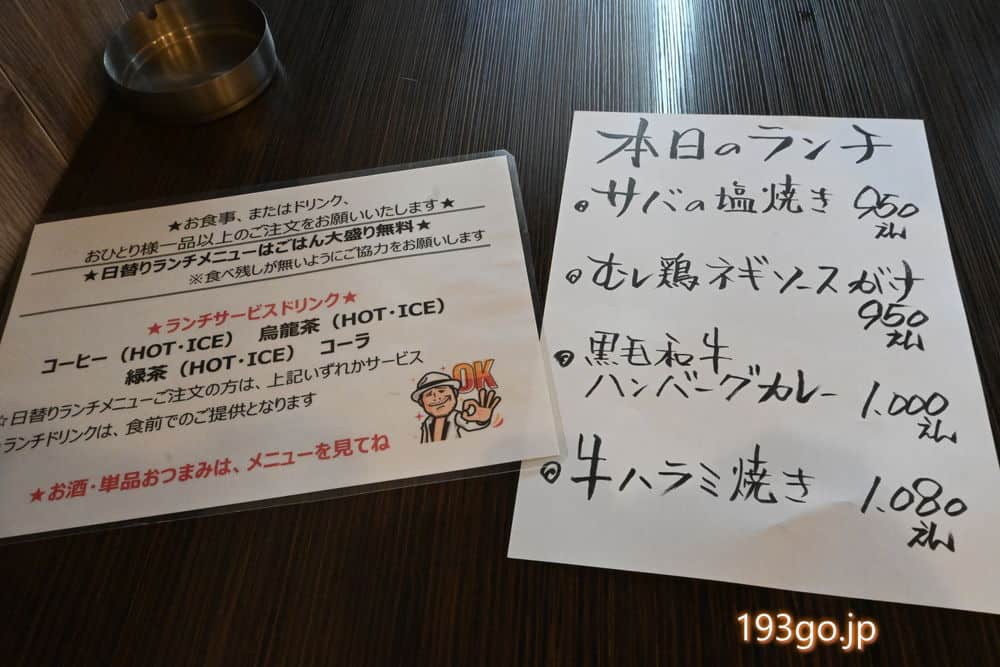 ★お食事、またはドリンク、
おひとり様一品以上のご注文をお願いいたします★
★日替りランチメニューはごはん大盛り無料★
※食べ残しが無いようにご協力をお願いします
★ランチサービスドリンク★
コーヒー（HOT・ICE） 烏龍茶（HOT・ICE）
緑茶（HOT・ICE） コーラ
☆日替りランチメニューご注文の方は、上記いずれかサービス
ランチドリンクは、食前でのご提供となります
OK
★お酒・単品おつまみは、メニューを見てね
本日のランチ
サバの塩焼き 950
えん
むし鶏ネギソースがけ
950
えん
黒毛和牛
ハンバーグカレー 1.000
えん
牛ハラミ焼き 1.080
えん
193go.jp